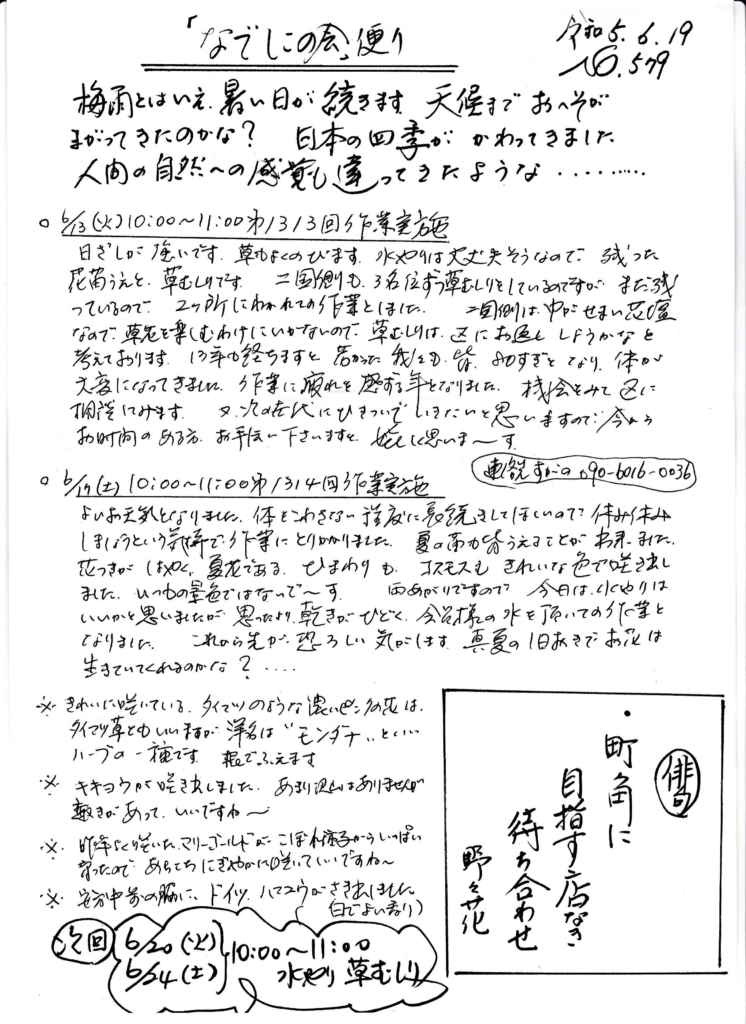 「なでしこの会」便り
令和5.6.19
No.579
梅雨とはいえ、暑い日が続きます。天候まで おへそが
まがってきたのかな? 日本の四季が かわってきました
人間の自然への感覚も違ってきたような‥‥‥‥
○ 6/13(火)10:00〜11:00 第1313回作業実施
日ざしが強いです。草もよくのびます。水やりは大丈夫そうなので、残った
花苗うえと、草むしりです。二国側も、3名位ずつ草むしりをしているのですが、まだ残
っているので、2ヶ所にわかれての作業としました。 二国側は、中がせまい花壇
なので、草花を楽しむわけにいかないので、草むしりは、区にお返ししようかなと
考えております。13年も経ちますと 若かった私たちも、皆、80すぎとなり、体が
大変になってきました。作業に疲れを感ずる年となりました。機会をみて区に
相談してみます。 又、次の世代にひきついでいきたいと思いますので、今から
お時間のある方、お手伝い下さいますと、嬉しく思いま〜す。
連絡先 すがの 090-6016-0036
○ 6/17(土)10:00〜11:00 第1314回作業実施
よいお天気となりました。体をこわさない程度に長続きしてほしいので、休み休み
しましょうという気持で、作業にとりかかりました。夏の苗も皆うえることが出来ました。
花つきが はやく、夏花である、ひまわりも、コスモスも きれいな色で咲き出し
ました。いつもの景色ではないで〜す。 雨あがりですので 今日は、水やりは
いいかと思いましたが 思ったより、乾きがひどく、今日様の水を頂いての作業と
なりました。 これから先が、恐ろしい気がします。真夏の1日おきでお花は
生きていてくれるのかな?‥‥
※ きれいに咲いている、タイマツのような濃いピンクの花は、
タイマツ草ともいいますが 洋名は"モンダナ"といい
ハーブの一種です。根でふえます
※ キキョウが咲き出しました。あまり沢山はありませんが
趣きがあって、いいですね〜
※ 昨年よく咲いた、マリーゴールドが、こぼれ種子からいっぱい
育ったので、あちこちにぎやかに咲いていいですね〜
※ 安方中前の脇に、ドイツ、ハマユウがさき出しました
(白でよい香り)
次回
6/20(火)
6/24(土)
10:00〜11:00
水やり 草むしり
俳句
・町角に
目指す店なき
待ち合わせ
野々花